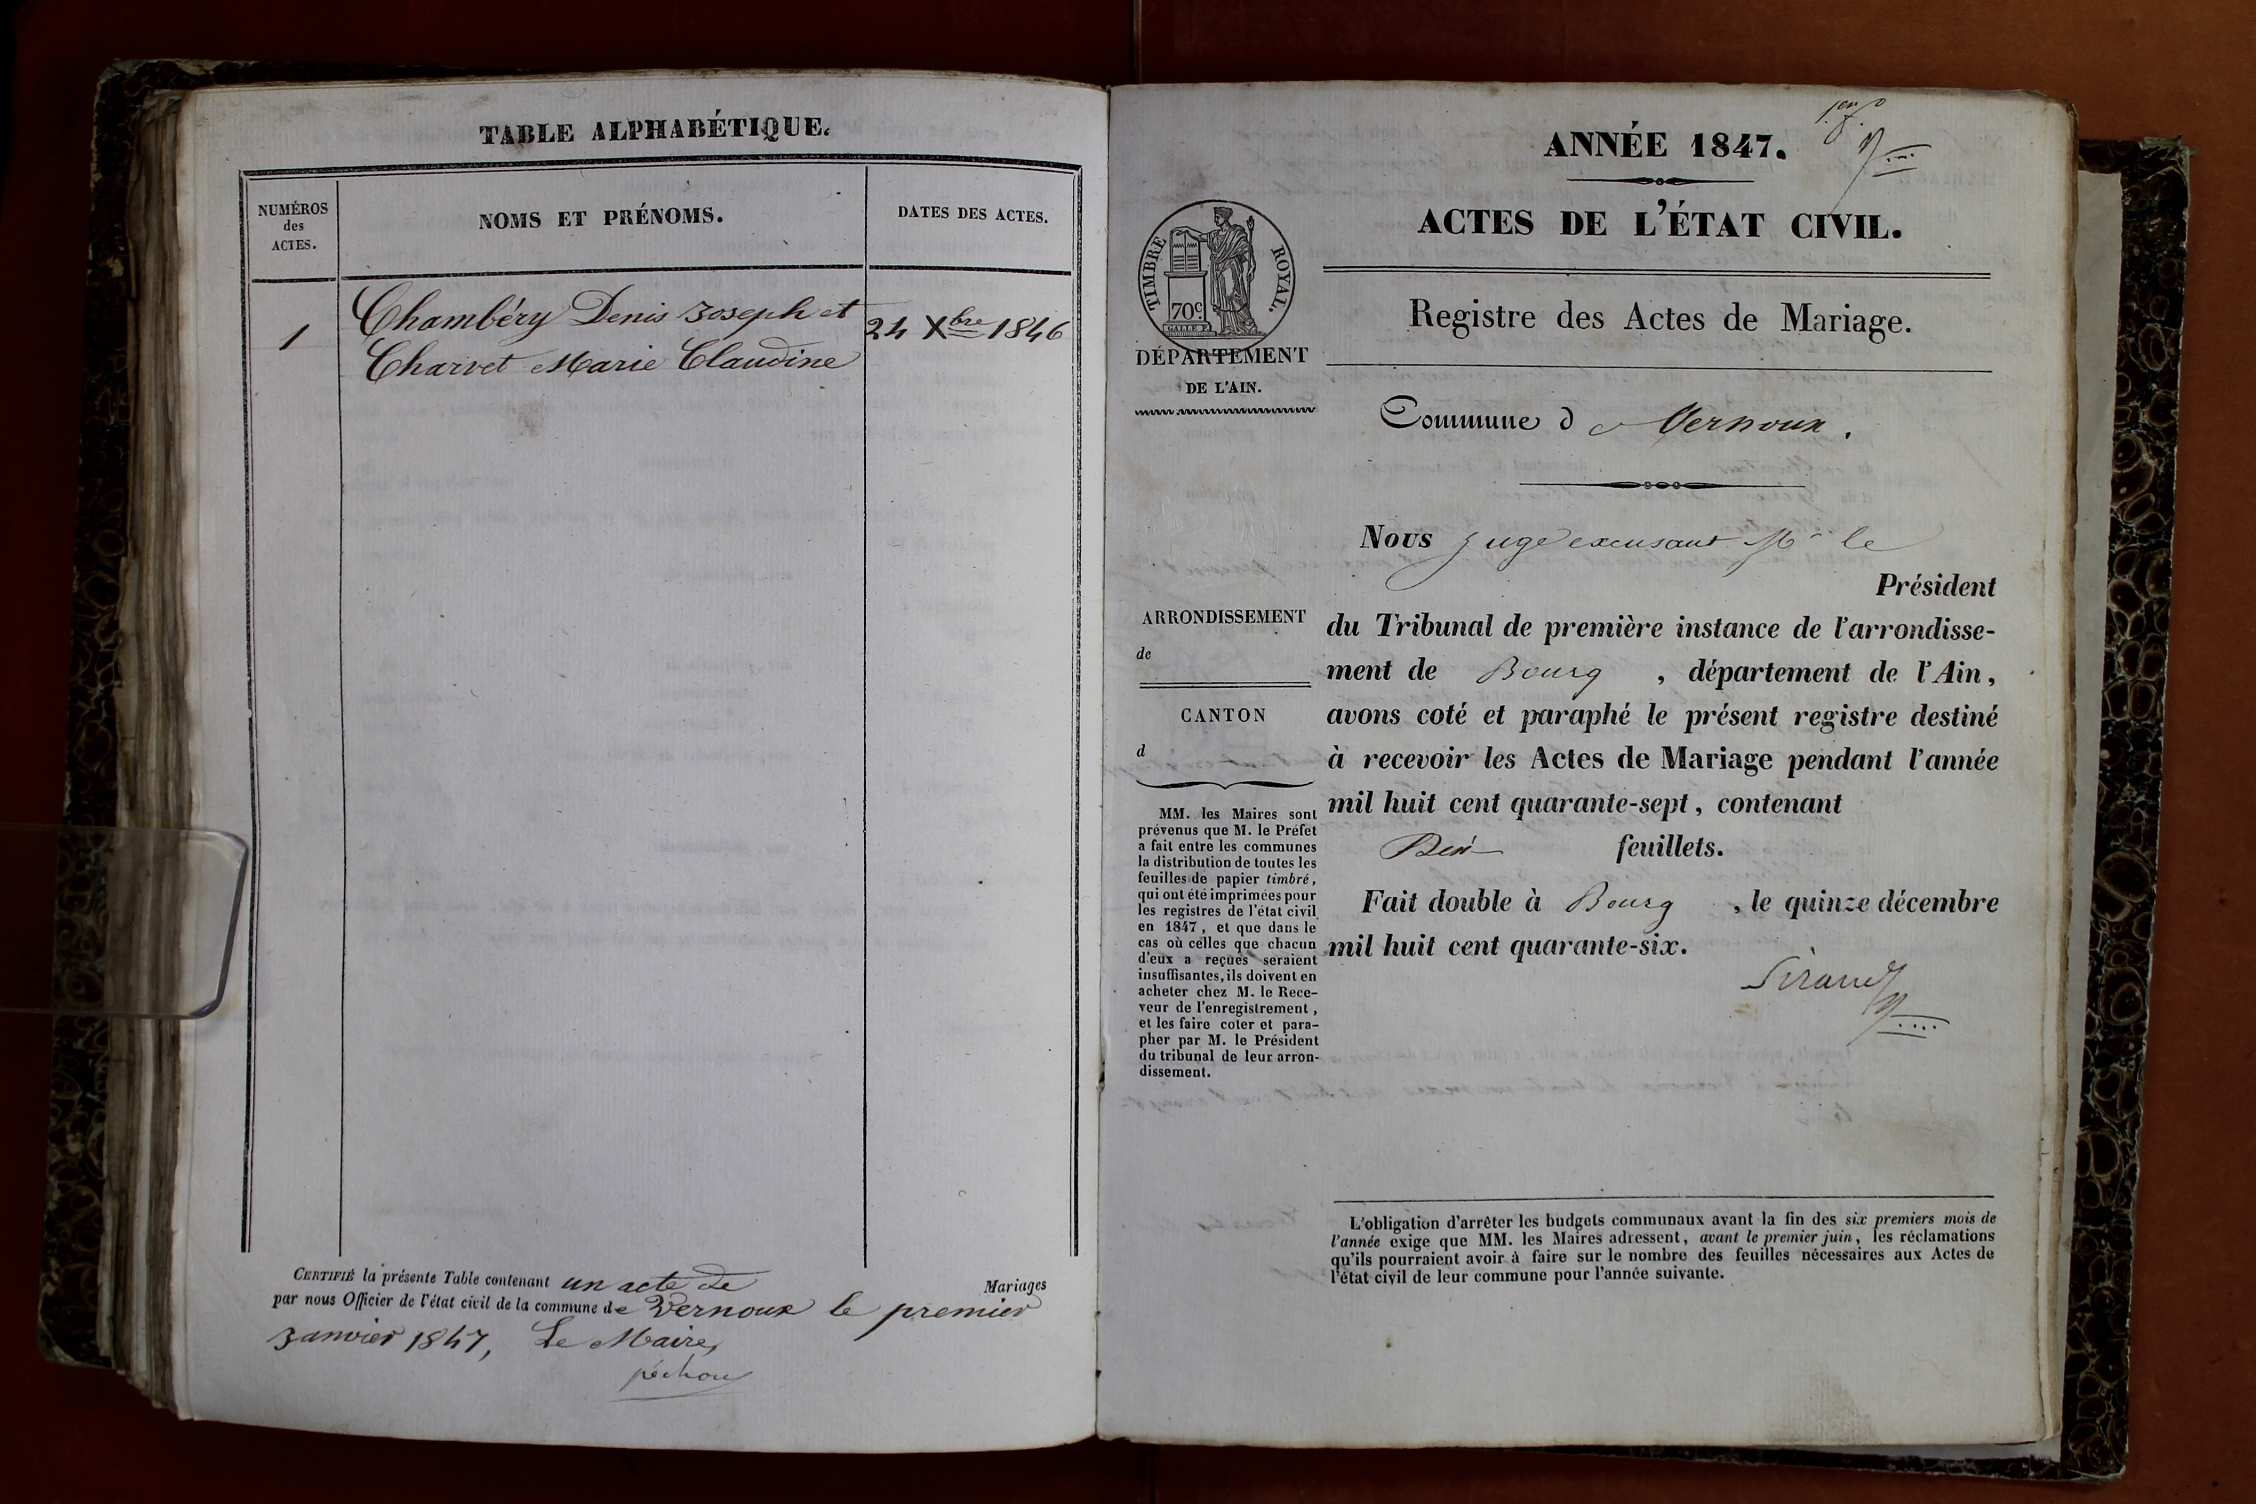 TABLE ALPHABÉTIQUE.
NUMÉROS
des
ACTES.
NOMS ET PRÉNOMS.
DATES DES ACTES.
1
Chambéry Denis Joseph et
Charvet Marie Claudine
24 Xbre 1846
CERTIFIÉ la présente Table contenant un acte de Mariages
par nous Officier de l'état civil de la commune de Vernoux le premier
Janvier 1847, Le Maire,
péchoux
ANNÉE 1847.
ACTES DE L'ÉTAT CIVIL.
TIMBRE ROYAL.
70c
DÉPARTEMENT
DE L'AIN.
Registre des Actes de Mariage.
Commune d e Vernoux.
Nous Juge excusant Mr le
Président
du Tribunal de première instance de l'arrondisse-
ment de Bourg , département de l'Ain,
avons coté et paraphé le présent registre destiné
à recevoir les Actes de Mariage pendant l'année
mil huit cent quarante-sept, contenant
feuillets.
Fait double à Bourg , le quinze décembre
mil huit cent quarante-six.
ARRONDISSEMENT
de
CANTON
d
MM. les Maires sont
prévenus que M. le Préfet
a fait entre les communes
la distribution de toutes les
feuilles de papier timbré,
qui ont été imprimées pour
les registres de l'état civil
en 1847, et que dans le
cas où celles que chacun
d'eux a reçues seraient
insuffisantes, ils doivent en
acheter chez M. le Rece-
veur de l'enregistrement,
et les faire coter et para-
pher par M. le Président
du tribunal de leur arron-
dissement.
L'obligation d'arrêter les budgets communaux avant la fin des six premiers mois de
l'année exige que MM. les Maires adressent, avant le premier juin, les réclamations
qu'ils pourraient avoir à faire sur le nombre des feuilles nécessaires aux Actes de
l'état civil de leur commune pour l'année suivante.